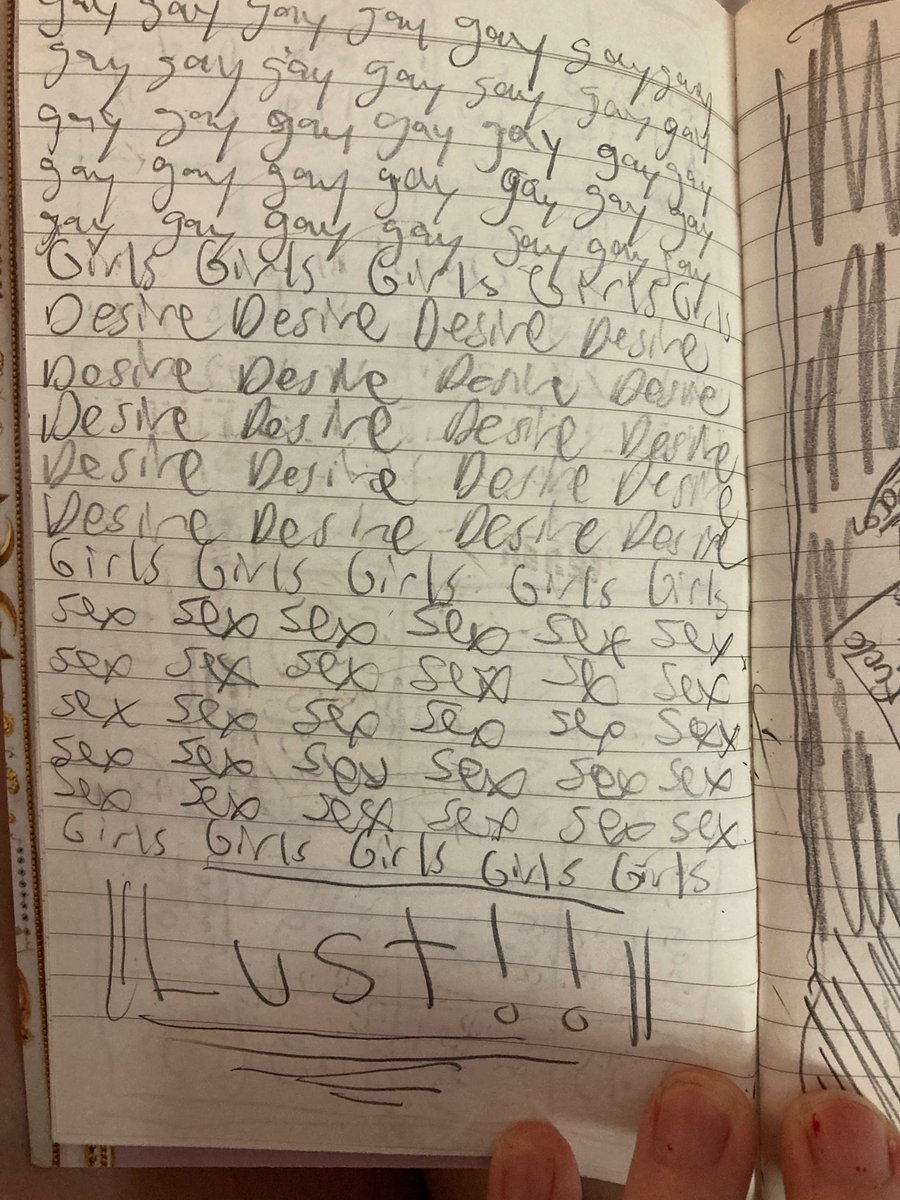 gay gay gay gay gay gay gay
gay gay gay gay gay gay gay
gay gay gay gay gay gay gay
gay gay gay gay gay gay gay
gay gay gay gay gay gay gay
Girls Girls Girls Girls Girls
Desire Desire Desire Desire
Desire Desire Desire Desire
Desire Desire Desire Desire
Desire Desire Desire Desire
Desire Desire Desire Desire
Girls Girls Girls Girls Girls
sex sex sex sex sex sex
sex sex sex sex sex sex
sex sex sex sex sex sexx
sex sex sex sex sex sex
sex sex sex sex sex sex
Girls Girls Girls Girls Girls
Lust!!